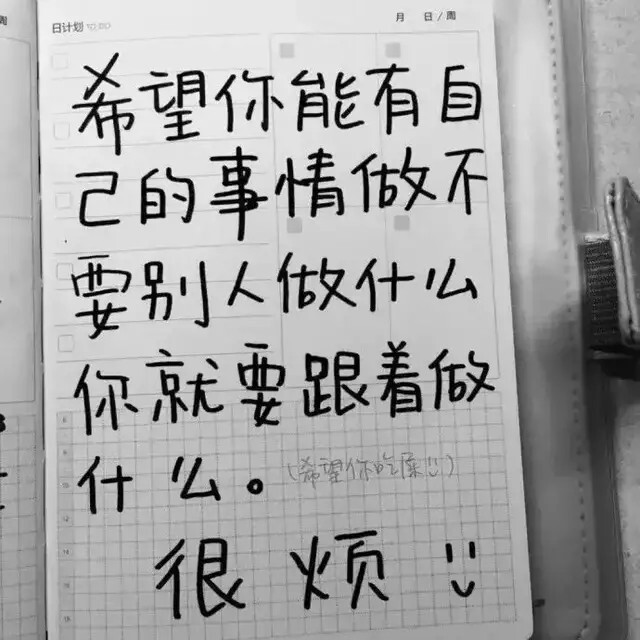 日计划 TO DO 月 日/周
希望你能有自
己的事情做不
要别人做什么
你就要跟着做
什么。(希望你吃屎!!)
很烦!!